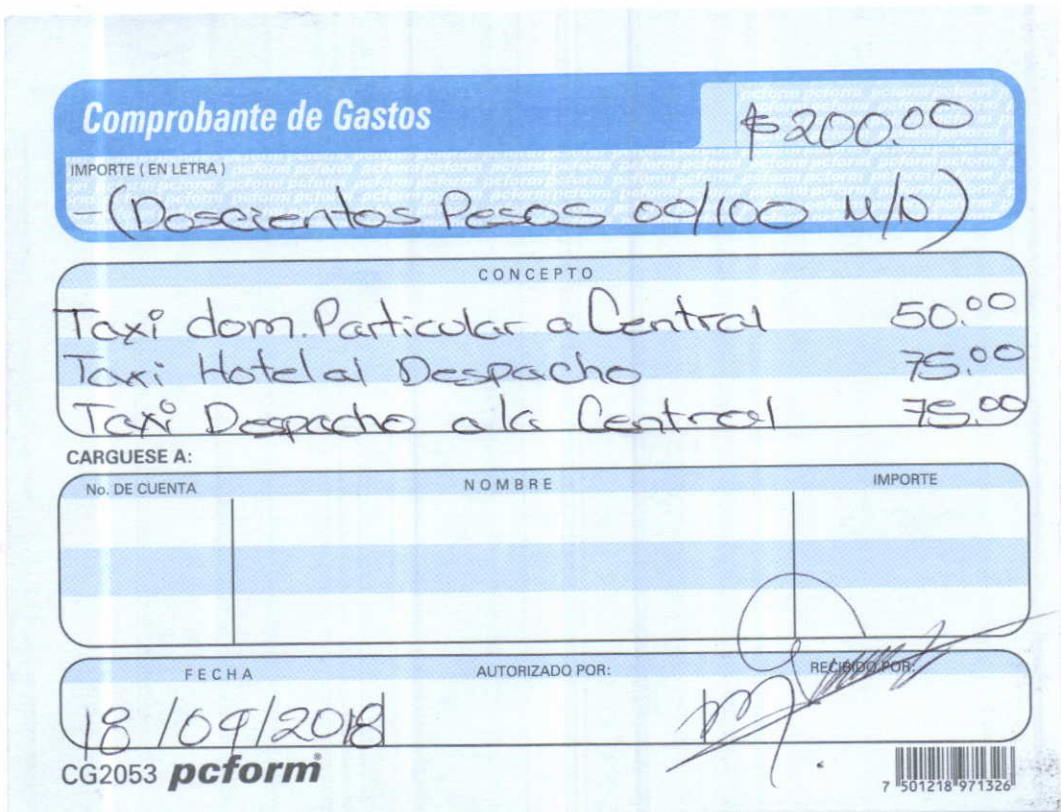 Comprobante de Gastos
$200.00
IMPORTE ( EN LETRA )
-(Doscientos Pesos 00/100 M/N)
CONCEPTO
Taxi dom. Particular a Central 50.00
Taxi Hotel al Despacho 75.00
Taxi Despacho a la Central 75.00
CARGUESE A:
No. DE CUENTA NOMBRE IMPORTE
FECHA AUTORIZADO POR: RECIBIDO POR:
18/09/2018
CG2053 pcform
7 501218 971326